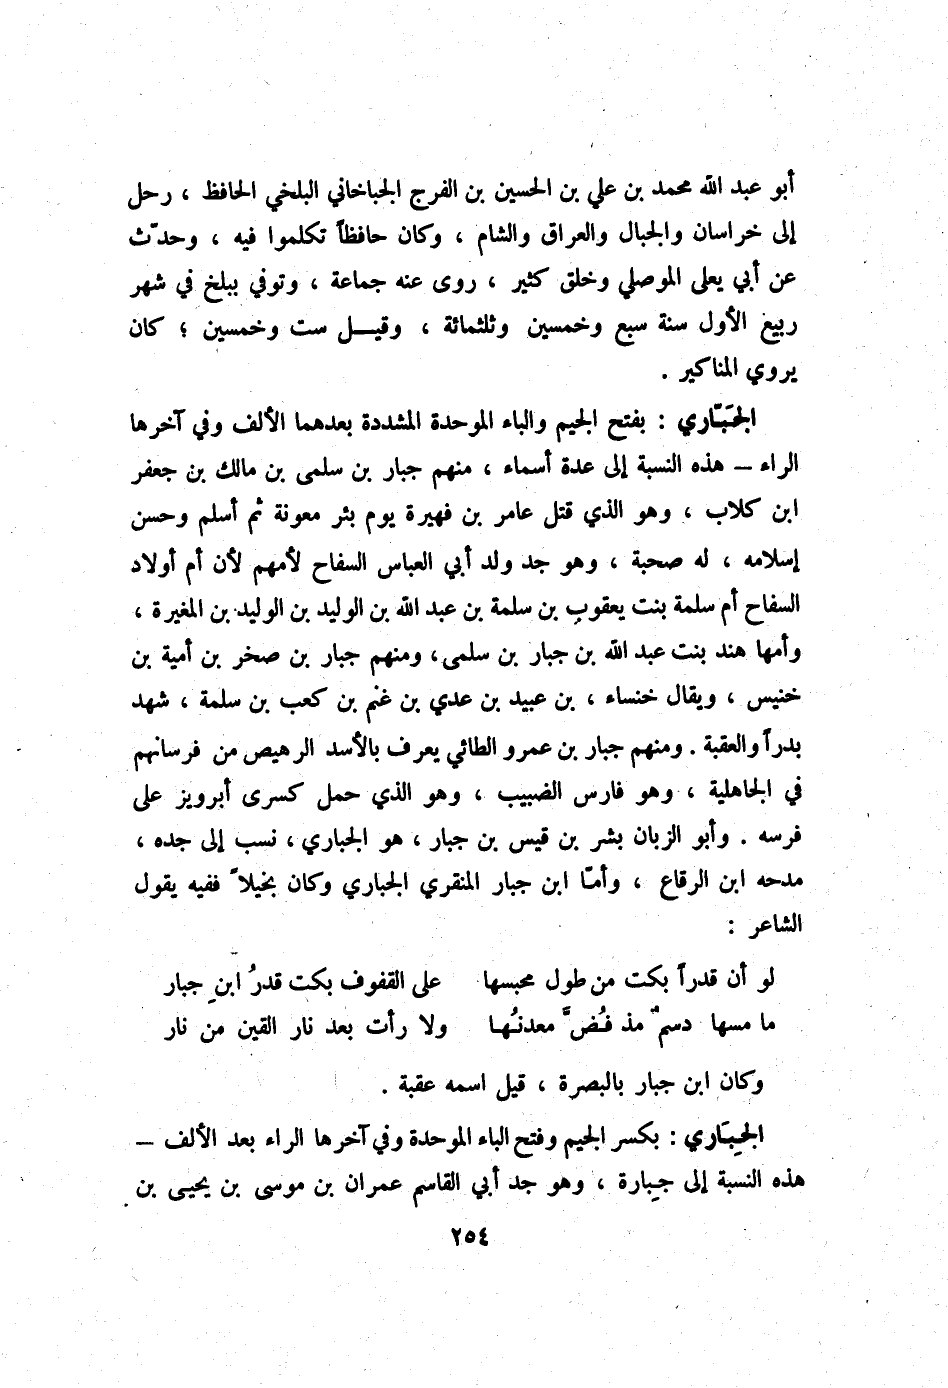 أبو عبد الله محمد بن علي بن الحسين بن الفرج الجباخاني البلخي الحافظ ، رحل
إلى خراسان والجبال والعراق والشام ، وكان حافظاً تكلموا فيه ، وحدّث
عن أبي يعلى الموصلي وخلق كثير ، روى عنه جماعة ، وتوفي ببلخ في شهر
ربيع الأول سنة سبع وخمسين وثلثمائة ، وقيـــل ست وخمسين ؛ كان
يروي المناكير .
الجَبّاري : بفتح الجيم والباء الموحدة المشددة بعدهما الألف وفي آخرها
الراء – هذه النسبة إلى عدة أسماء ، منهم جبار بن سلمى بن مالك بن جعفر
ابن كلاب ، وهو الذي قتل عامر بن فهيرة يوم بئر معونة ثم أسلم وحسن
إسلامه ، له صحبة ، وهو جد ولد أبي العباس السفاح لأمهم لأن أم أولاد
السفاح أم سلمة بنت يعقوب بن سلمة بن عبد الله بن الوليد بن الوليد بن المغيرة ،
وأمها هند بنت عبد الله بن جبار بن سلمى، ومنهم جبار بن صخر بن أمية بن
خنيس ، ويقال خنساء ، بن عبيد بن عدي بن غنم بن كعب بن سلمة ، شهد
بدراً والعقبة . ومنهم جبار بن عمرو الطائي يعرف بالأسد الرهيص من فرسانهم
في الجاهلية ، وهو فارس الضبيب ، وهو الذي حمل كسرى أبرويز على
فرسه . وأبو الزبان بشر بن قيس بن جبار ، هو الجباري ، نسب إلى جده ،
مدحه ابن الرقاع ، وأمّا ابن جبار المنقري الجباري وكان بخيلاً ففيه يقول
الشاعر :
لو أن قدراً بكت من طول محبسها على القفوف بكت قدرُ ابنِ جبار
ما مسها دسمٌ مذ فُضَّ معدنُها ولا رأت بعد نار القين من نار
وكان ابن جبار بالبصرة ، قيل اسمه عقبة .
الجِبَاري : بكسر الجيم وفتح الباء الموحدة وفي آخرها الراء بعد الألف –
هذه النسبة إلى جِبارة ، وهو جد أبي القاسم عمران بن موسى بن يحيى بن
٢٥٤